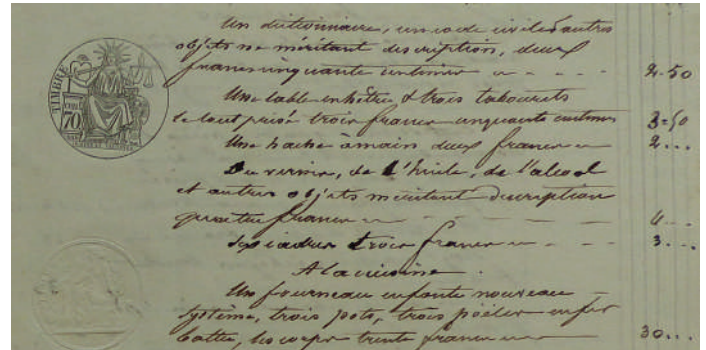 Un dictionnaire, un code civil & autres
objets ne méritant description, deux
francs cinquante centimes 2.50
Une table en hêtre & trois tabourets
le tout prisé trois francs cinquante centimes 3=50
Une hache à main deux francs 2...
Du vernis, de l'huile, de l'alcool
et autres objets méritant description
quatre francs 4...
Six cadres trois francs 3...
A la cuisine.
Un fourneau en fonte nouveau
système, trois pots, trois poêles en fer
battu, les corps trente francs 30...
TIMBRE
70